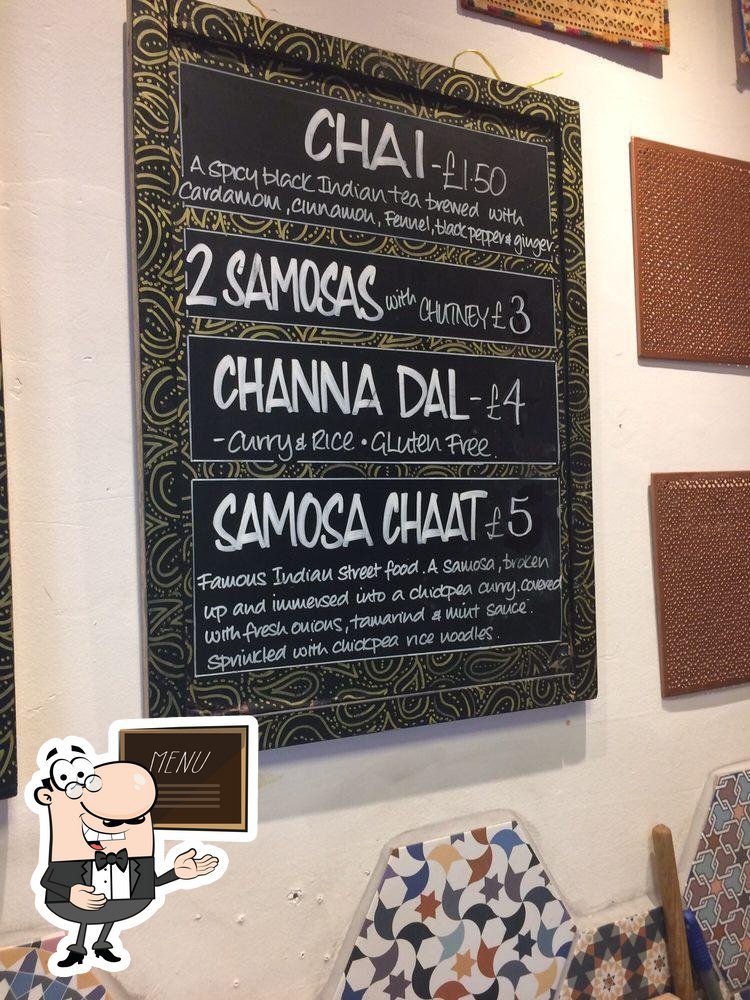 CHAI - £1.50
A spicy black Indian tea brewed with
Cardamom, Cinnamon, Fennel, black pepper & ginger.
2 SAMOSAS with CHUTNEY £3
CHANNA DAL - £4
- Curry & RICE • Gluten Free.
SAMOSA CHAAT £5
Famous Indian street food. A samosa, broken
up and immersed into a chickpea curry. covered
with fresh onions, tamarind & mint sauce.
Sprinkled with chickpea rice noodles.
MENU